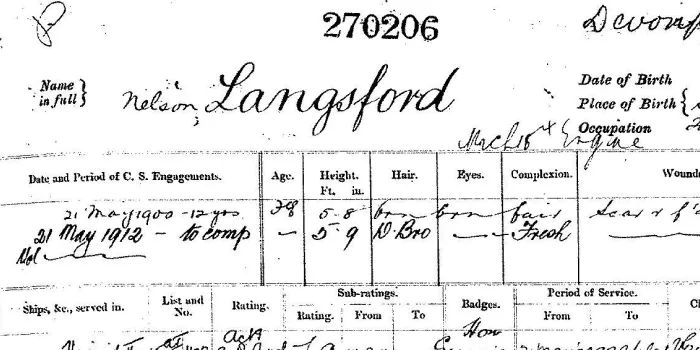 270206
Devonp
Name in full } Nelson, Langsford
Date of Birth
Place of Birth {
Occupation
Engine
Date and Period of C. S. Engagements. Age. Height. Ft. in. Hair. Eyes. Complexion. Wound
21 May 1900 - 12 yrs 28 5 8 brn brn fair Scar
21 May 1912 - to comp — 5 9 D. Bro — Fresh
Vol
Ships, &c., served in. List and No. Rating. Sub-ratings. Rating. From To Badges. Period of Service. From To